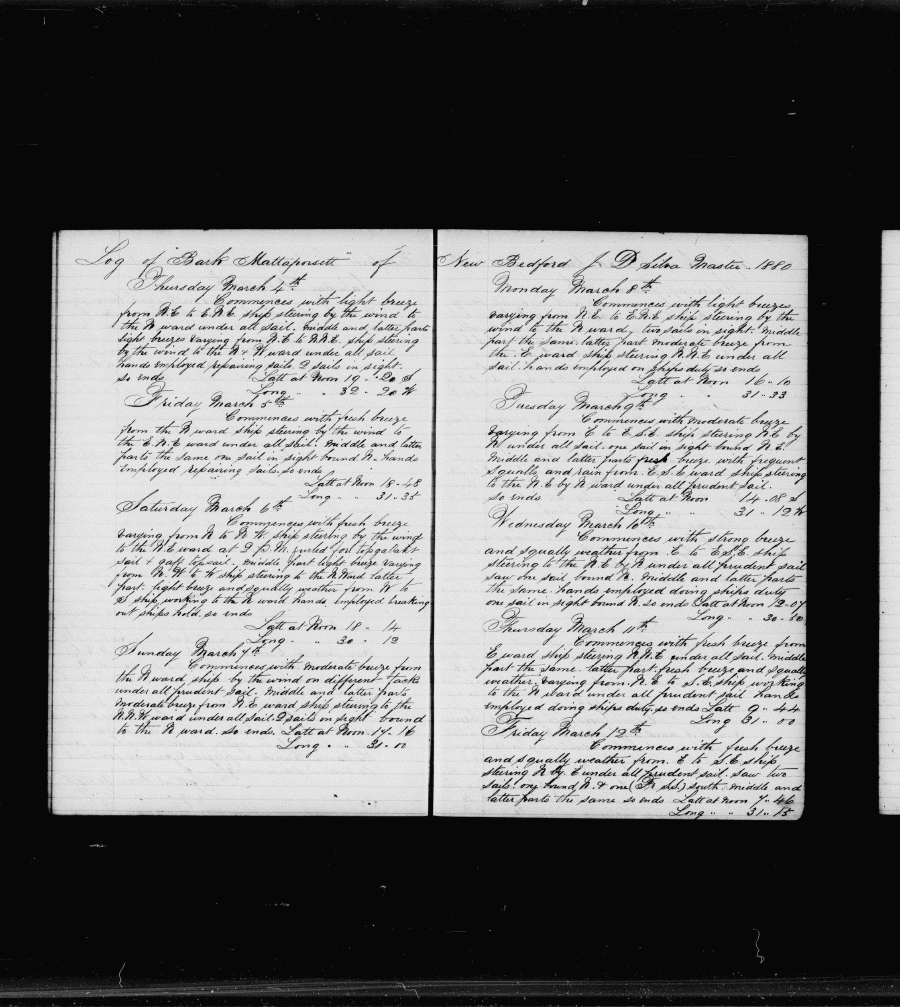 Log of "Bark Mattapoisett" of
Thursday March 4th
Commences with light breeze
from N.E to E.N.E. ship steering by the wind to
the N ward under all sail. middle and latter parts
light breezes varying from N.E to N.N.E. ship steering
by the wind to the N & W ward under all sail
hands employed repairing sails. 2 sails in sight.
so ends Latt at Noon 19 " 20 S
Long " " 32 " 20 W
Friday March 5th
Commences with fresh breeze
from the N ward ship steering by the wind to
the E.N.E ward under all sail. middle and latter
parts the same one sail in sight bound N. hands
employed repairing sails. so ends
Latt at Noon 18 - 48
Long " " 31 - 35
Saturday March 6th
Commences with fresh breeze
varying from N to N W. ship steering by the wind
to the N.E ward at 2 P.M. furled fore topgalant
sail & gaff topsail. middle part light breeze varying
from N. W to W ship steering to the N. Ward latter
part. light breeze and squally weather from W to
S ship working to the N ward hands employed breaking
out ships hold. so ends
Latt at Noon 18 - 14
Long " " 30 - 12
Sunday March 7th
Commences with moderate breeze from
the N ward ship by the wind on different tacks
under all prudent sail. middle and latter parts
moderate breeze from N.E ward ship steering to the
N.N.W ward under all sail. 2 sails in sight bound
to the N ward. so ends. Latt at Noon 17 - 16
Long " " 31 - 00
New Bedford J D Silva Master - 1880
Monday March 8th
Commences with light breezes
varying from N.E. to E.N.E ship steering by the
wind to the N ward, two sails in sight. middle
part the same. latter part moderate breeze from
the E ward ship steering N.N.E under all
sail. hands employed on ships duty so ends
Latt at Noon 16 - 10
Long " " 31 - 33
Tuesday March 9th
Commences with moderate breeze
varying from E to E.S.E. ship steering N.E by
N under all sail. one sail in sight bound N.E.
Middle and latter parts fresh breeze with frequent
squalls and rain from E.S.E ward ship steering
to the N.E by N ward under all prudent sail.
so ends Latt at Noon 14 - 08 S
Long " " 31 " 12 W
Wednesday March 10th
Commences with strong breeze
and squally weather from E to E.S.E ship
steering to the N.E by N under all prudent sail
saw one sail bound N. Middle and latter parts
the same. hands employed doing ships duty
one sail in sight bound N. so ends Latt at Noon 12-07
Long " " 30 - 50
Thursday March 11th
Commences with fresh breeze from
E ward ship steering N.N.E under all sail. middle
part the same. latter part fresh breeze and squally
weather. varying from. N.E to S.E. ship working
to the N ward under all prudent sail hands
employed doing ships duty. so ends Latt 9 " 44
Long 31 " 00
Friday March 12th
Commences with fresh breeze
and squally weather from. E to S.E ship
steering N by. E under all prudent sail. saw two
sails. one bound N. & one south. middle and
latter parts the same so ends Latt at Noon 7 " 46
Long " " 31 " 15